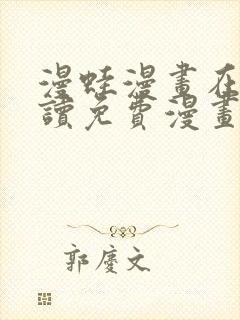 漫蛙漫畫在
讀免費漫畫
郭慶文